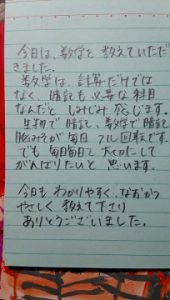 今日は、数学を教えていただ
きました。
数学は、計算だけでは
なく、暗記も必要な科目
なんだと しみじみ 感じます。
生物で暗記、数学で暗記
脳みそが毎日 フル回転です。
でも 毎日毎日
がんばりたいと 思います。
今日も わかりやすく、なおかつ
やさしく 教えて下さり
ありがとうございました。